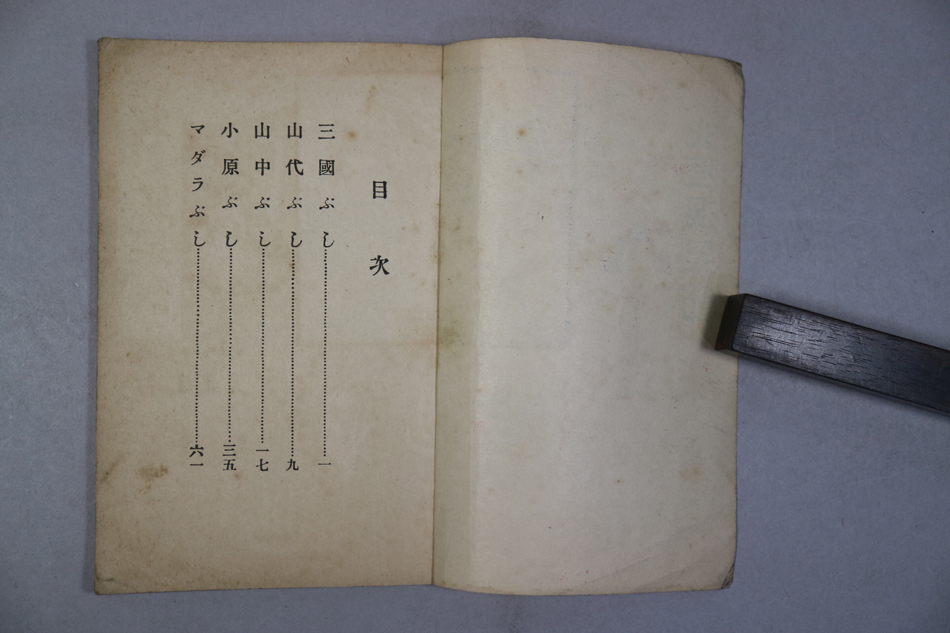 目次
三國ぶし……………………一
山代ぶし……………………九
山中ぶし……………………一七
小原ぶし……………………三五
マダラぶし……………………六一